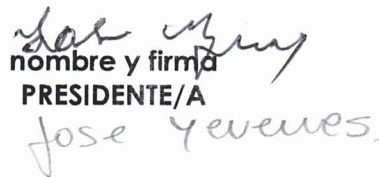 nombre y firma
PRESIDENTE/A
Jose Yevenes